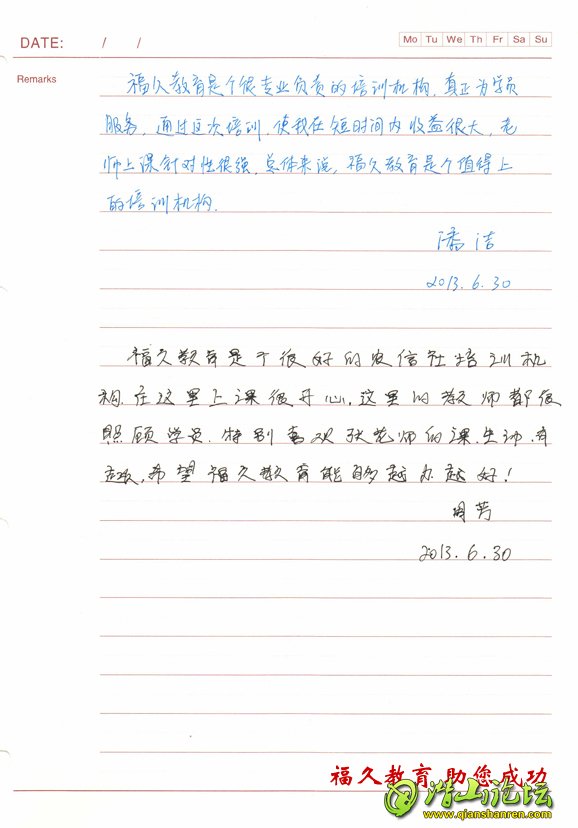 DATE: / /
Mo Tu We Th Fr Sa Su
Remarks
福久教育是个很专业负责的培训机构,真正为学员
服务,通过这次培训,使我在短时间内收益很大,老
师上课针对性很强,总体来说,福久教育是个值得上
的培训机构.
潘洁
2013.6.30
福久教育是个很好的农信社培训机
构.在这里上课很开心,这里的教师都很
照顾学员.特别喜欢张老师的课.生动.有
趣,希望福久教育能够越办越好!
周芳
2013.6.30
福久教育助您成功
潜山论坛
www.qianshanren.com